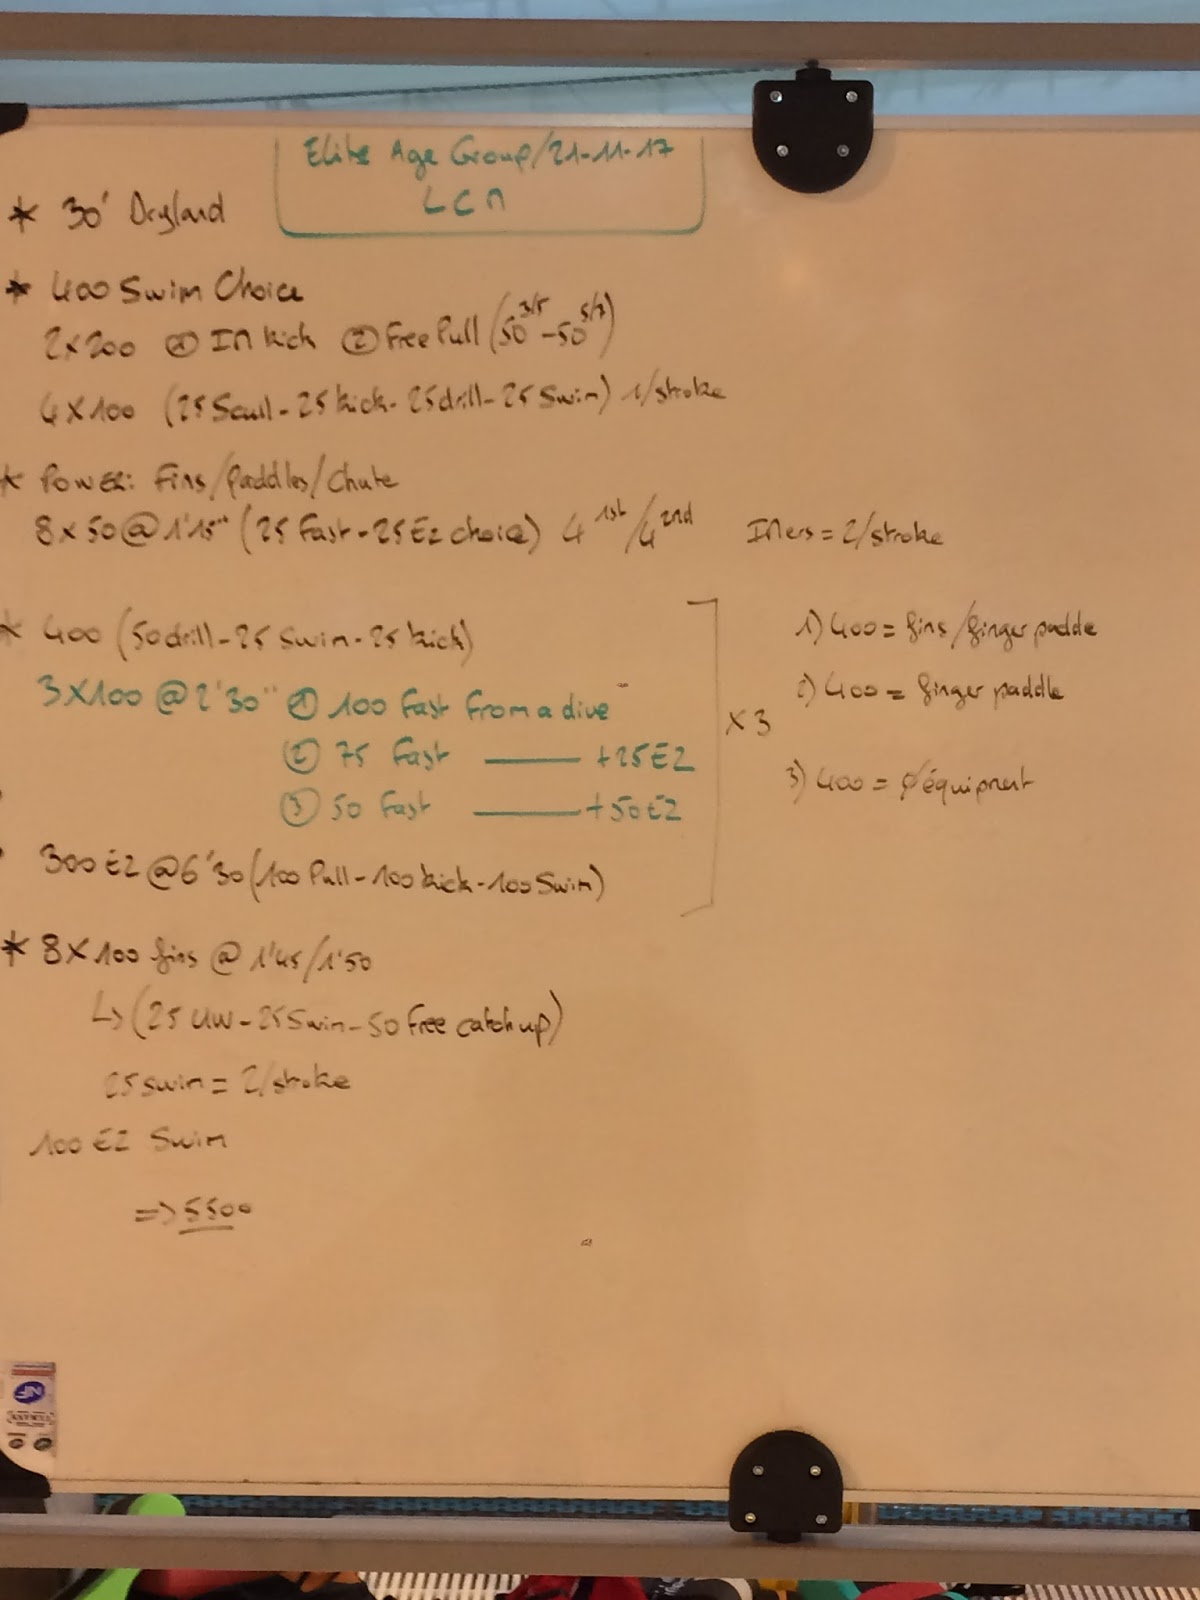 Elite Age Group/21-11-17
LCM
* 30' Dryland
* 400 Swim Choice
2x200 ① IM kick ② Free Pull (50^3/5 - 50^5/7)
4x100 (25 Scull - 25 kick - 25 drill - 25 Swim) 1/stroke
* Power: Fins/paddles/chute
8x50 @ 1'15" (25 Fast - 25 Ez choice) 4 1st/4 2nd
IMers = 2/stroke
* 400 (50 drill - 25 Swim - 25 kick)
3x100 @ 2'30" ① 100 Fast From a dive
② 75 Fast —— +25 EZ
③ 50 Fast —— +50 EZ
300 EZ @ 6'30 (100 Pull - 100 kick - 100 Swim)
x 3
1) 400 = fins/finger paddle
2) 400 = finger paddle
3) 400 = Ø équipment
* 8x100 fins @ 1'45/1'50
↳ (25 UW - 25 Swim - 50 Free catch up)
25 swim = 2/stroke
100 EZ Swim
=> 5500
NF